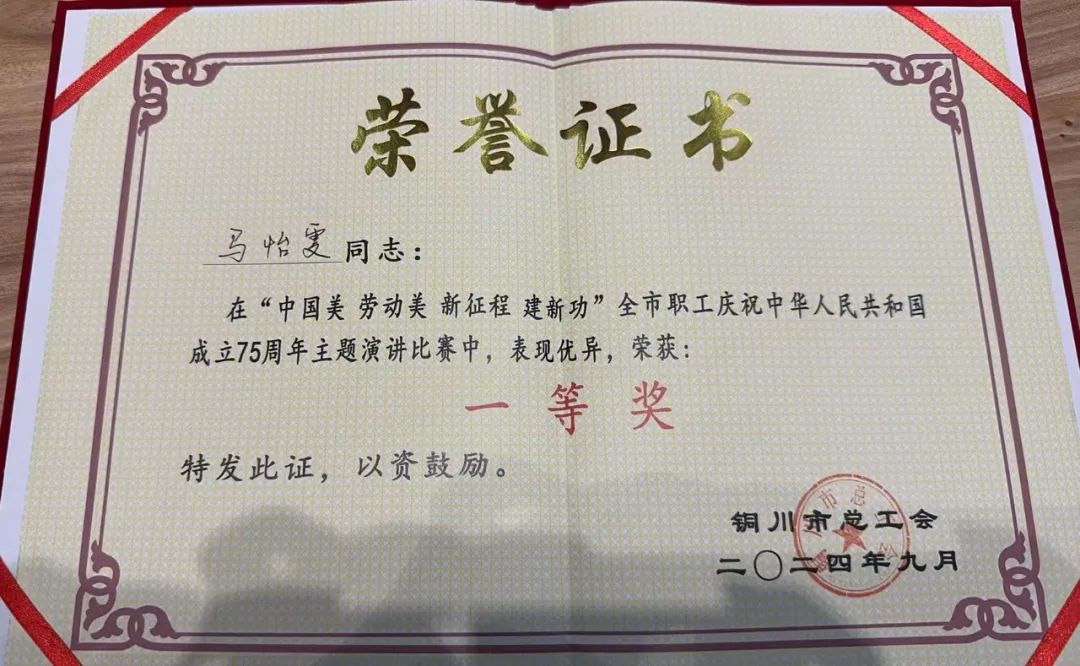 荣誉证书
马怡雯同志：
在“中国美 劳动美 新征程 建新功”全市职工庆祝中华人民共和国
成立75周年主题演讲比赛中，表现优异，荣获：
一等奖
特发此证，以资鼓励。
铜川市总工会
二〇二四年九月